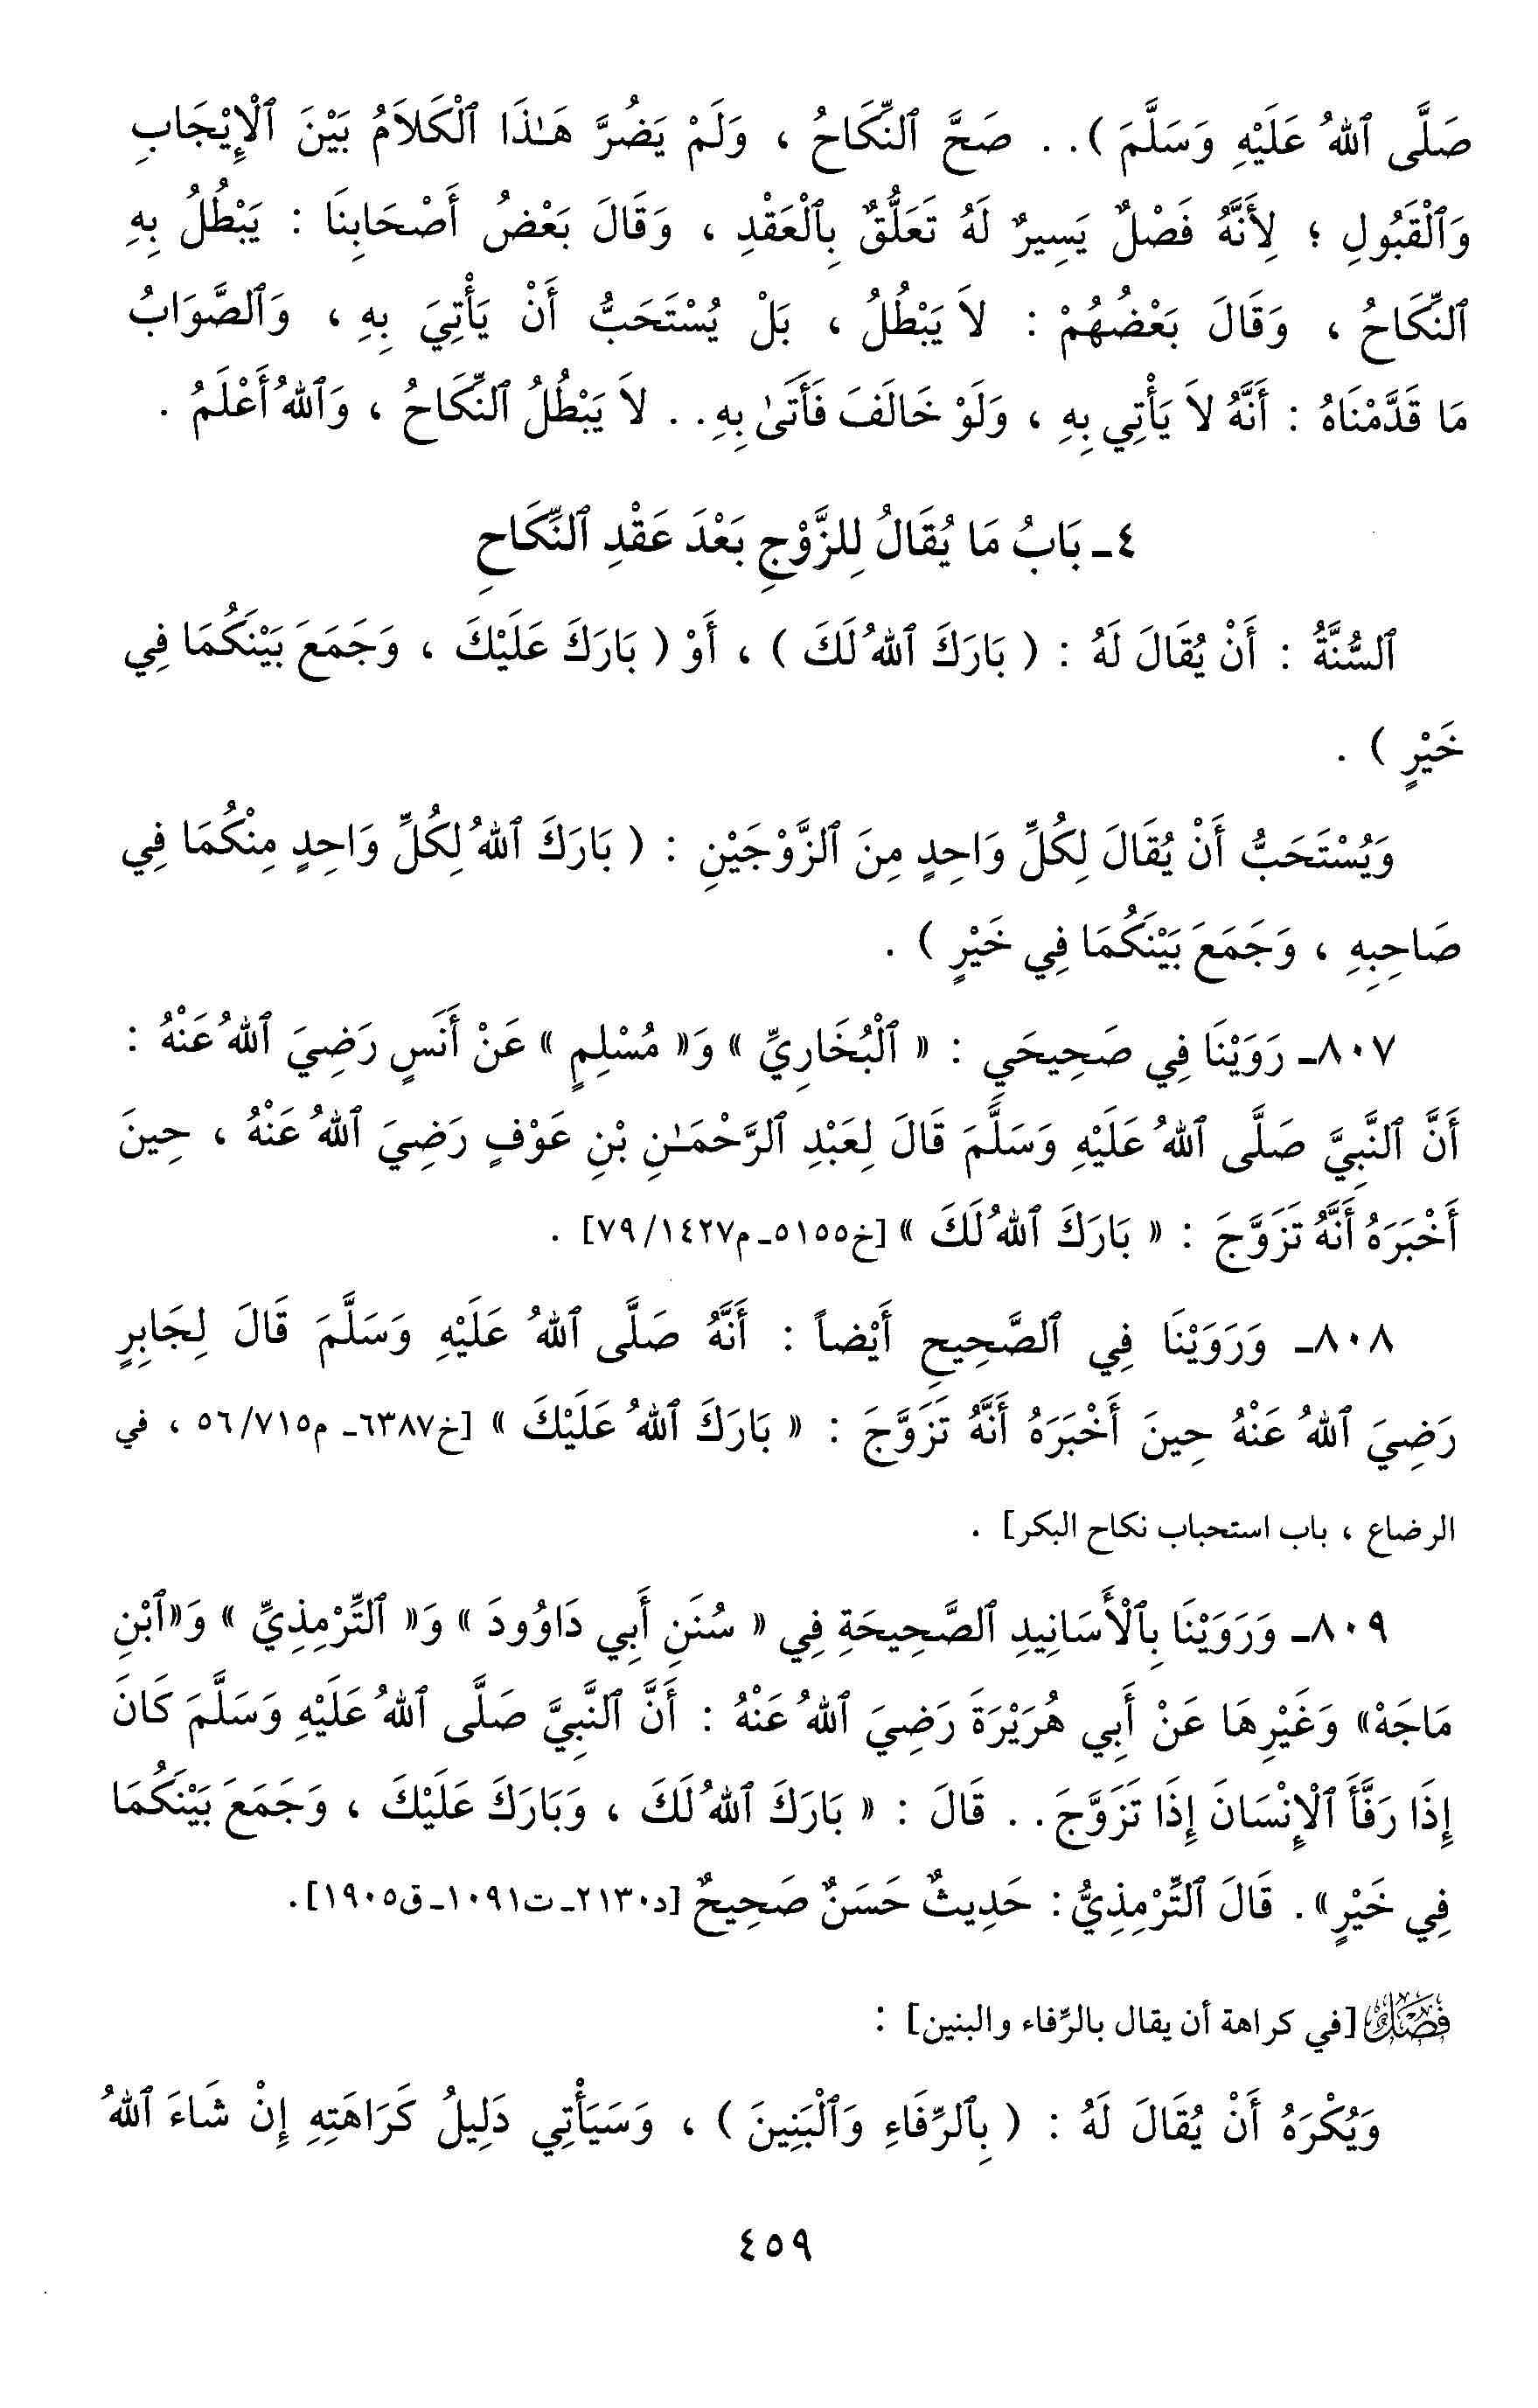 صَلَّى ٱللهُ عَلَيْهِ وَسَلَّمَ ) . . صَحَّ ٱلنِّكَاحُ ، وَلَمْ يَضُرَّ هَـٰذَا ٱلْكَلاَمُ بَيْنَ ٱلْإِيْجَابِ
وَٱلْقَبُولِ ؛ لِأَنَّهُ فَصْلٌ يَسِيرٌ لَهُ تَعَلُّقٌ بِٱلْعَقْدِ ، وَقَالَ بَعْضُ أَصْحَابِنَا : يَبْطُلُ بِهِ
ٱلنِّكَاحُ ، وَقَالَ بَعْضُهُمْ : لاَ يَبْطُلُ ، بَلْ يُسْتَحَبُّ أَنْ يَأْتِيَ بِهِ ، وَٱلصَّوَابُ
مَا قَدَّمْنَاهُ : أَنَّهُ لاَ يَأْتِي بِهِ ، وَلَوْ خَالَفَ فَأَتَىٰ بِهِ . . لاَ يَبْطُلُ ٱلنِّكَاحُ ، وَٱللهُ أَعْلَمُ .
٤ـ بَابُ مَا يُقَالُ لِلزَّوْجِ بَعْدَ عَقْدِ ٱلنِّكَاحِ
ٱلسُّنَّةُ : أَنْ يُقَالَ لَهُ : ( بَارَكَ ٱللهُ لَكَ ) ، أَوْ ( بَارَكَ عَلَيْكَ ، وَجَمَعَ بَيْنَكُمَا فِي
خَيْرٍ ) .
وَيُسْتَحَبُّ أَنْ يُقَالَ لِكُلِّ وَاحِدٍ مِنَ ٱلزَّوْجَيْنِ : ( بَارَكَ ٱللهُ لِكُلِّ وَاحِدٍ مِنْكُمَا فِي
صَاحِبِهِ ، وَجَمَعَ بَيْنَكُمَا فِي خَيْرٍ ) .
٨٠٧ـ رَوَيْنَا فِي صَحِيحَيِ : « ٱلْبُخَارِيِّ » وَ« مُسْلِمٍ » عَنْ أَنَسٍ رَضِيَ ٱللهُ عَنْهُ :
أَنَّ ٱلنَّبِيَّ صَلَّى ٱللهُ عَلَيْهِ وَسَلَّمَ قَالَ لِعَبْدِ ٱلرَّحْمَـٰنِ بْنِ عَوْفٍ رَضِيَ ٱللهُ عَنْهُ ، حِينَ
أَخْبَرَهُ أَنَّهُ تَزَوَّجَ : « بَارَكَ ٱللهُ لَكَ » [خ٥١٥٥ـ م١٤٢٧/ ٧٩] .
٨٠٨ـ وَرَوَيْنَا فِي ٱلصَّحِيحِ أَيْضاً : أَنَّهُ صَلَّى ٱللهُ عَلَيْهِ وَسَلَّمَ قَالَ لِجَابِرٍ
رَضِيَ ٱللهُ عَنْهُ حِينَ أَخْبَرَهُ أَنَّهُ تَزَوَّجَ : « بَارَكَ ٱللهُ عَلَيْكَ » [خ٦٣٨٧ـ م٧١٥/ ٥٦ ، في
الرضاع ، باب استحباب نكاح البكر] .
٨٠٩ـ وَرَوَيْنَا بِٱلْأَسَانِيدِ ٱلصَّحِيحَةِ فِي « سُنَنِ أَبِي دَاوُودَ » وَ« ٱلتِّرْمِذِيِّ » وَ«ٱبْنِ
مَاجَهْ» وَغَيْرِهَا عَنْ أَبِي هُرَيْرَةَ رَضِيَ ٱللهُ عَنْهُ : أَنَّ ٱلنَّبِيَّ صَلَّى ٱللهُ عَلَيْهِ وَسَلَّمَ كَانَ
إِذَا رَفَّأَ ٱلْإِنْسَانَ إِذَا تَزَوَّجَ . . قَالَ : « بَارَكَ ٱللهُ لَكَ ، وَبَارَكَ عَلَيْكَ ، وَجَمَعَ بَيْنَكُمَا
فِي خَيْرٍ» . قَالَ ٱلتِّرْمِذِيُّ : حَدِيثٌ حَسَنٌ صَحِيحٌ [د٢١٣٠ـ ت١٠٩١ـ ق١٩٠٥].
فَصْلٌ [في كراهة أن يقال بالرِّفاء والبنين] :
وَيُكْرَهُ أَنْ يُقَالَ لَهُ : ( بِٱلرِّفَاءِ وَٱلْبَنِينَ ) ، وَسَيَأْتِي دَلِيلُ كَرَاهَتِهِ إِنْ شَاءَ ٱللهُ
٤٥٩